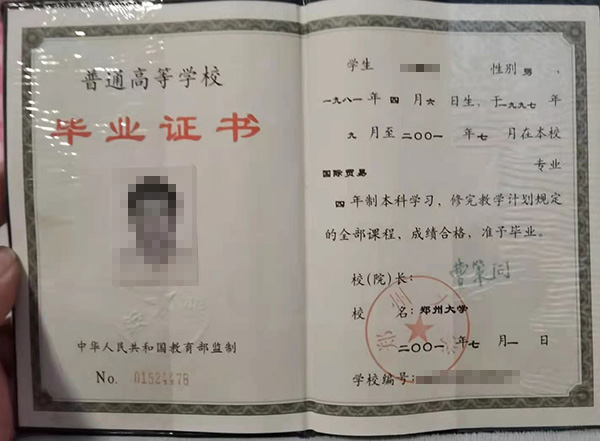 普通高等学校
毕业证书
中华人民共和国教育部监制
No.
学生 性别 男 、
一九八一 年 四 月 六 日生，于一九九七 年
九 月至 二〇〇一 年 七 月在本校
国际贸易 专业
四 年制本科学习，修完教学计划规定
的全部课程，成绩合格，准予毕业。
校(院)长：
校 名：郑州大学
二〇〇一 年 七 月 一 日
学校编号：